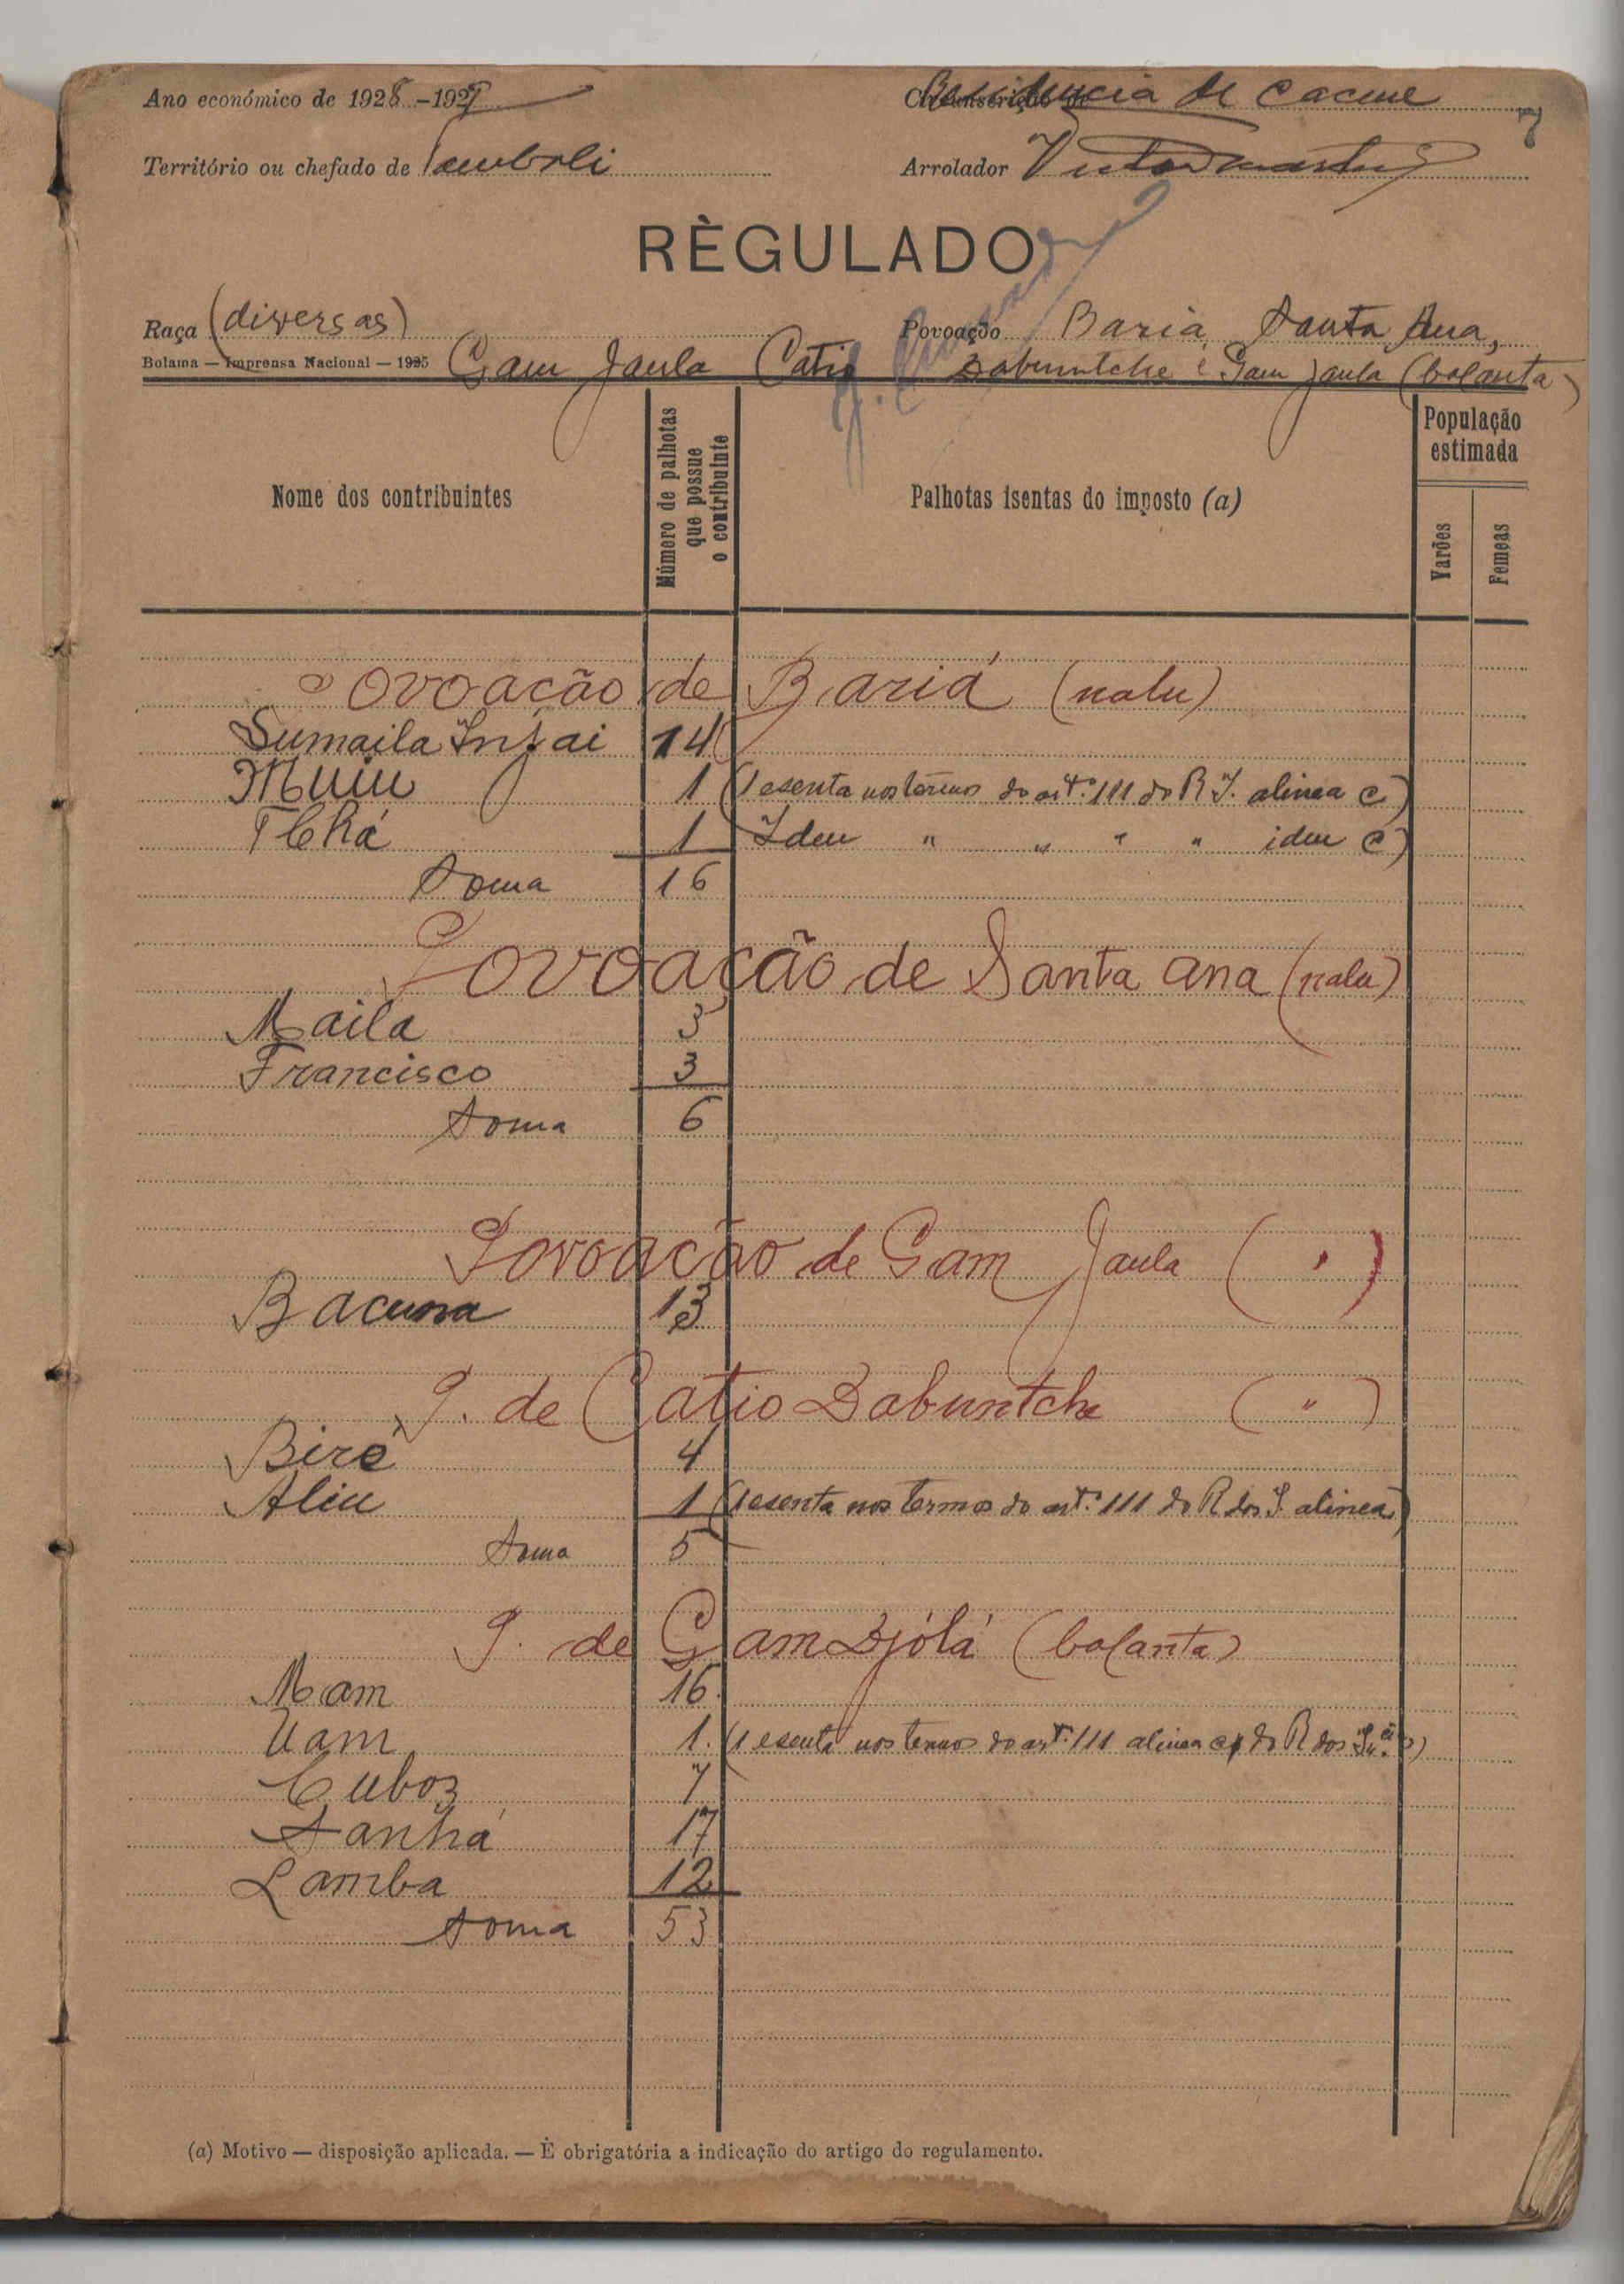 Ano económico de 1928-1929 Residencia de Cacine
7
Território ou chefado de Tombali Arrolador Victor Martins
RÈGULADO
Raça (diversas) Povoação Bariá, Santa Ana,
Bolama — Imprensa Nacional — 1925 Gam Jaula Catio Dabuntche e Gam Jaula (balanta)
Nome dos contribuintes
Número de palhotas que possue o contribuinte
Palhotas isentas do imposto (a)
População estimada
Varões
Femeas
Povoacão de Bariá (nalu)
Sumaila Injai 14
1 (1 esenta nos termos do art.º 111 do R I. alinea c)
1 Idem " " " " idem c)
Soma 16
Povoação de Santa Ana (nalu)
Maila 3
Francisco 3
Soma 6
Povoacão de Gam Jaula ( " )
Bacuna 13
P. de Catio Dabuntche ( " )
Biré 4
Aliu 1 (1 esenta nos termos do art.º 111 do R dos I. alinea)
Soma 5
P. de Gam Djólá (balanta)
Mam 16
Uam 1. (1 esenta nos termos do art.º 111 alinea c) do R dos
Cuboz 7
Tanhá 17
Lamba 12
Soma 53
(a) Motivo — disposição aplicada. — É obrigatória a indicação do artigo do regulamento.